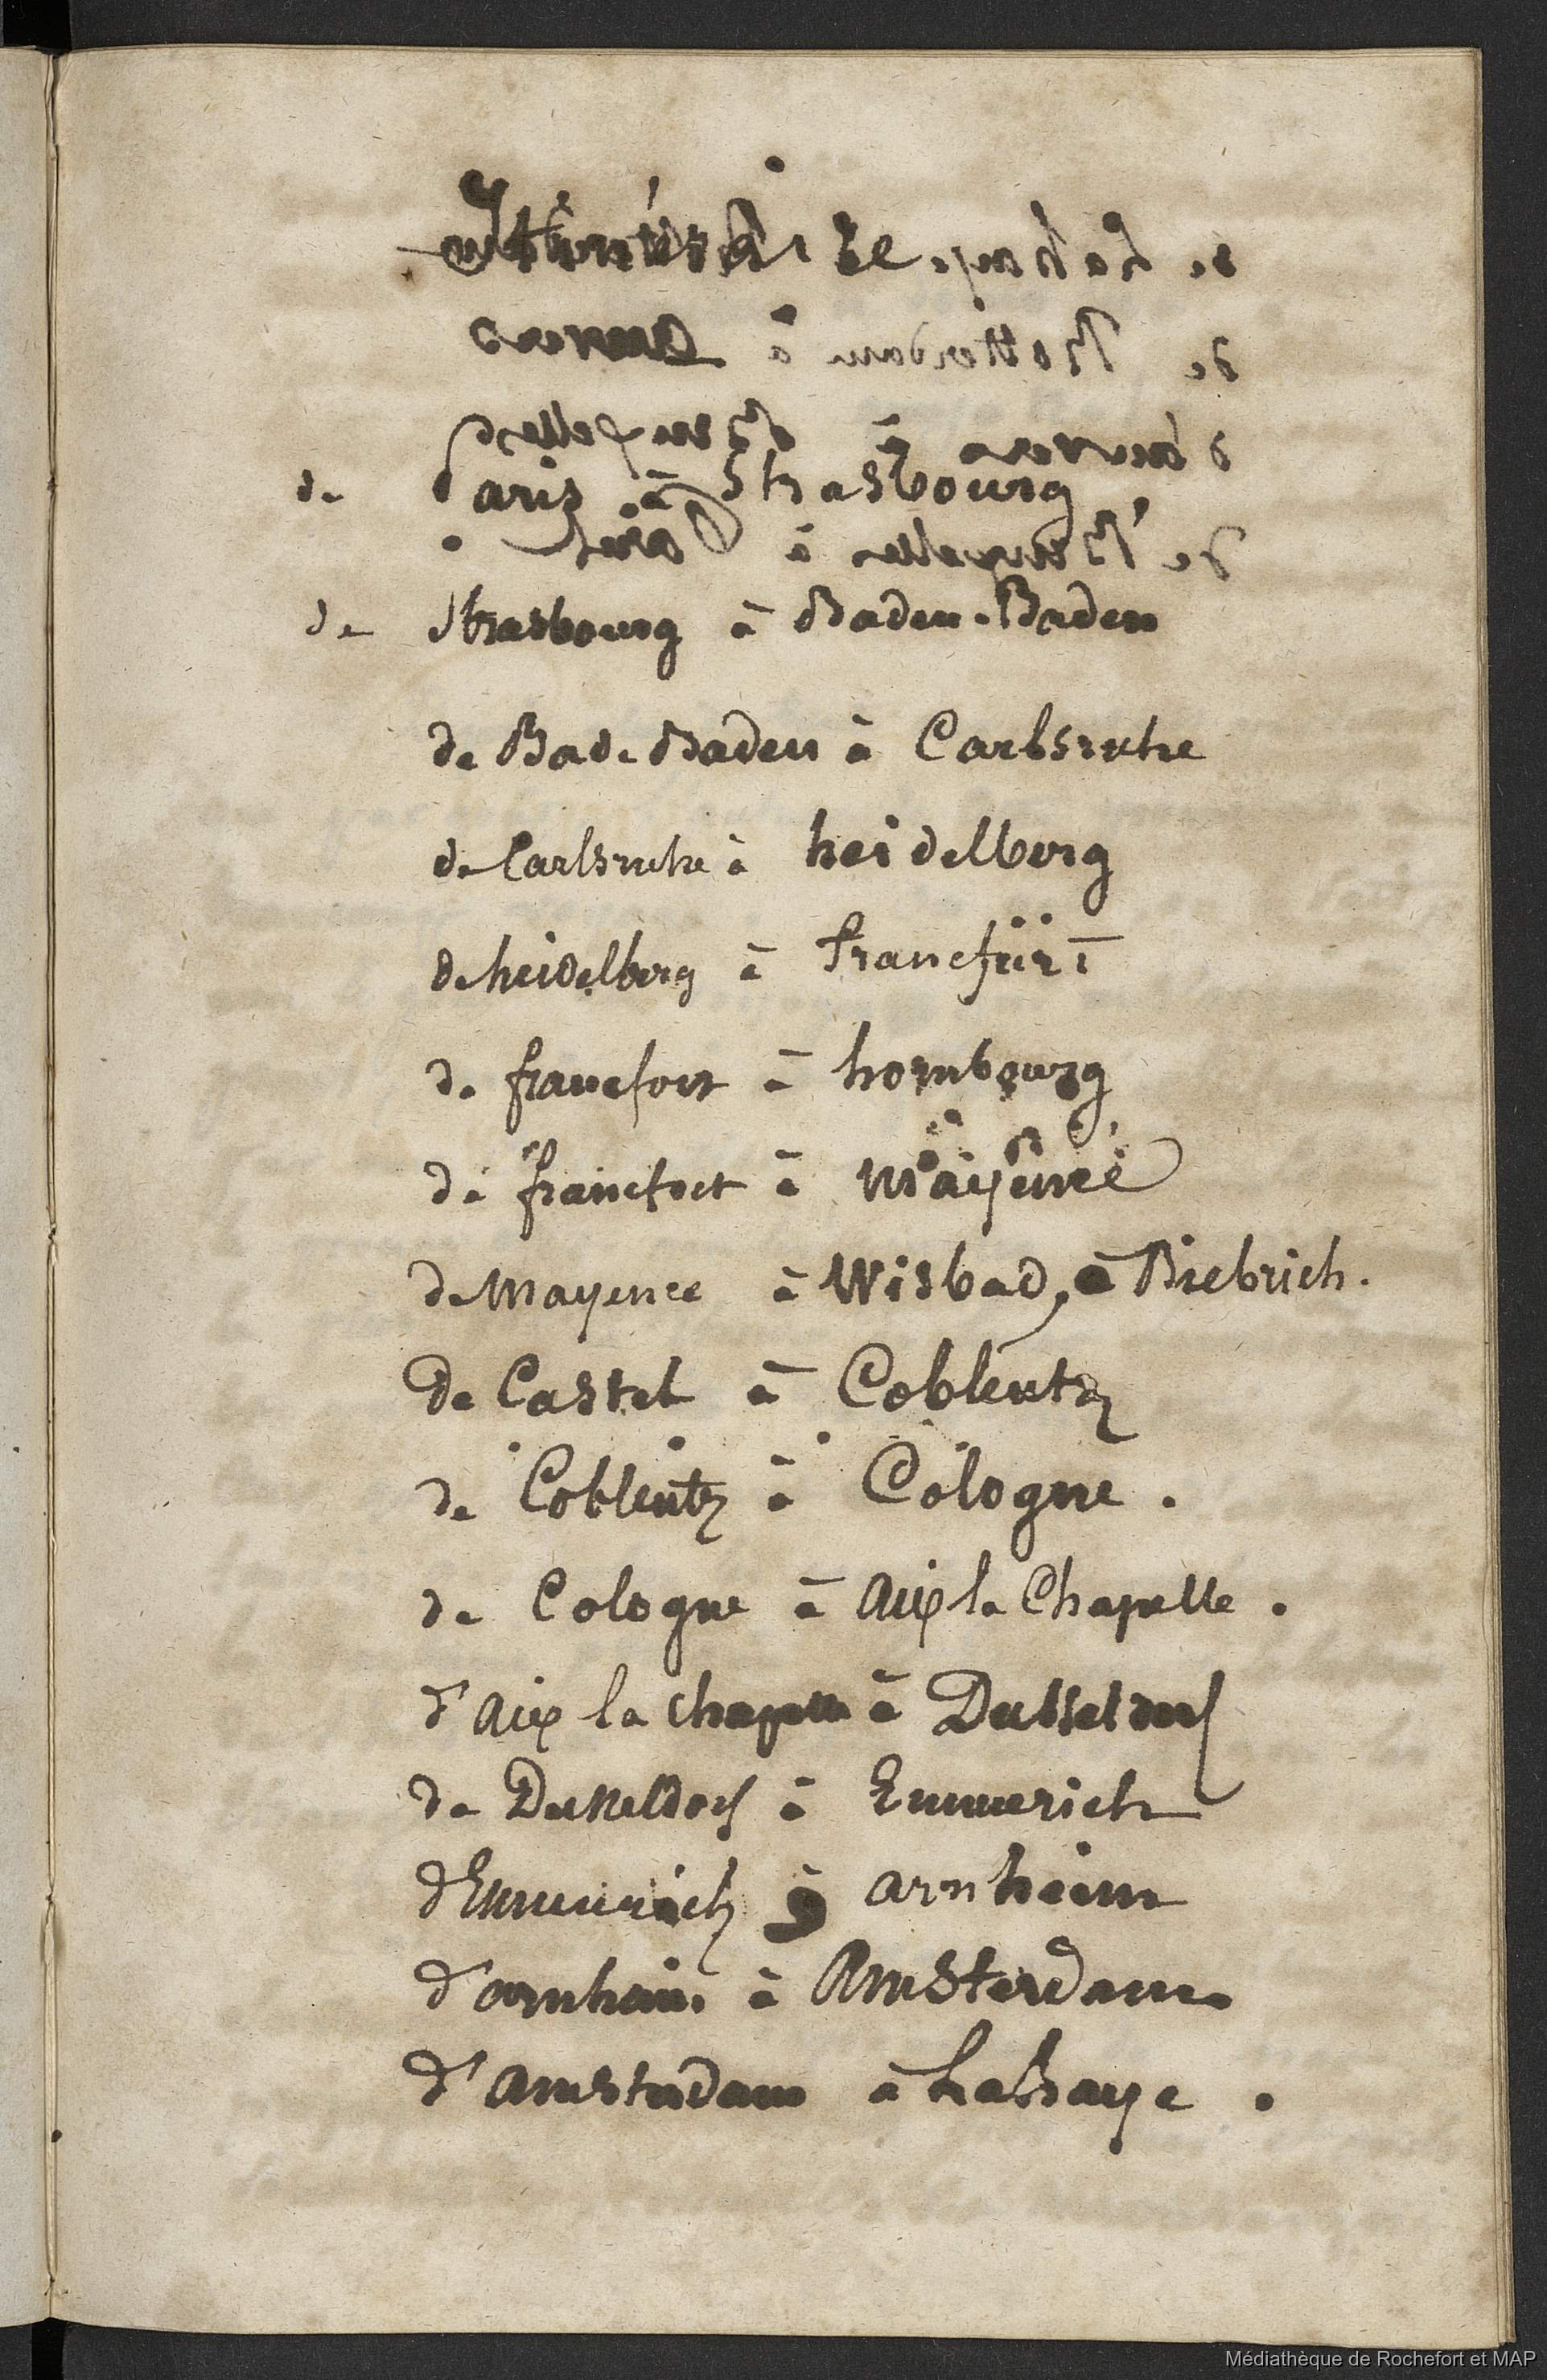 Itinéraire
de Paris à Strasbourg
de Strasbourg à Baden-Baden
de Bade Baden à Carlsruhe
de Carlsruhe à heidelberg
de heidelberg à francfürt
de francfort à hombourg
de francfort à Mayence
de Mayence à Wisbad, à Biebrich.
de Castel à Coblentz
de Coblentz à Cologne.
de Cologne à Aix la Chapelle.
d'Aix la chapelle à Dusseldorf
de Dusseldorf à Emmerich
d'Emmerich à arnheim
d'arnheim à Amsterdam
d'amsterdam à La haye.
Médiathèque de Rochefort et MAP